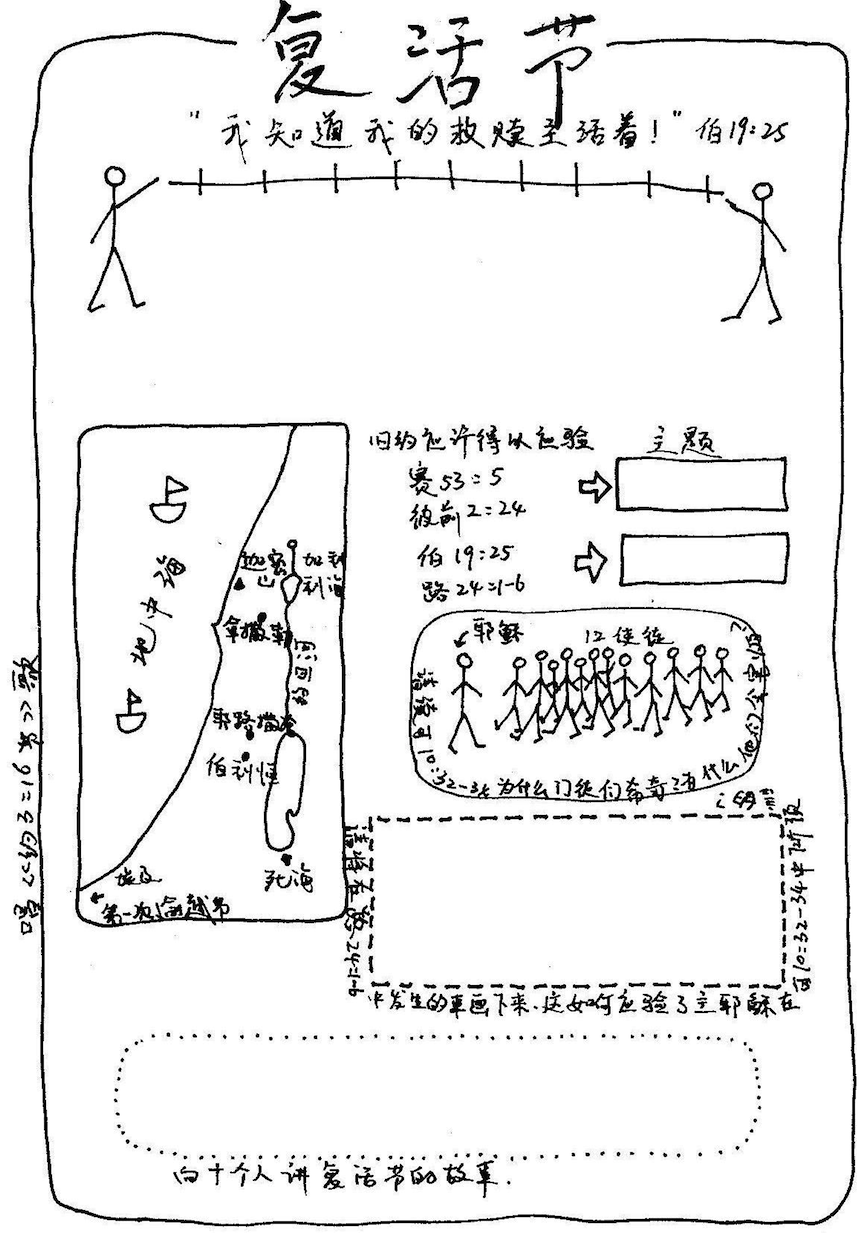 复活节
"我知道我的救赎主活着！" 伯19:25
旧约应许得以应验
主题
赛53:5
彼前2:24
伯19:25
路24:1-6
地中海
迦密山
加利利海
拿撒勒
约旦河
耶路撒冷
伯利恒
死海
埃及
第一次逾越节
耶稣
12使徒
请读可10:32-34为什么门徒们希奇？有什么他们会害怕？
请将在路24:1-6
中发生的事画下来，这如何应验了主耶稣在
可10:32-34中所预
言的？
唱《约3:16》歌
向十个人讲复活节的故事.